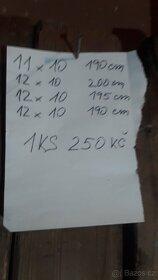 11 x 10 190 cm
12 x 10 200 cm
12 x 10 195 cm
12 x 10 190 cm
1KS 250 KČ
Bazoš.cz